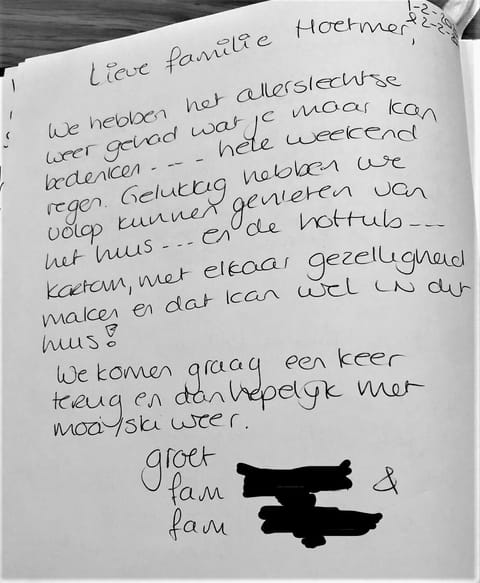 Lieve familie Hoetmer,
We hebben het allerslechtse
weer gehad wat je maar kan
bedenken - - - hele weekend
regen. Gelukkig hebben we
volop kunnen genieten van
het huis --- en de hottub---
Kortom, met elkaar gezelligheid
maken en dat kan wel in dit
huis!
We komen graag een keer
terug en dan hopelijk met
mooi/ski weer.
groet
fam &
fam